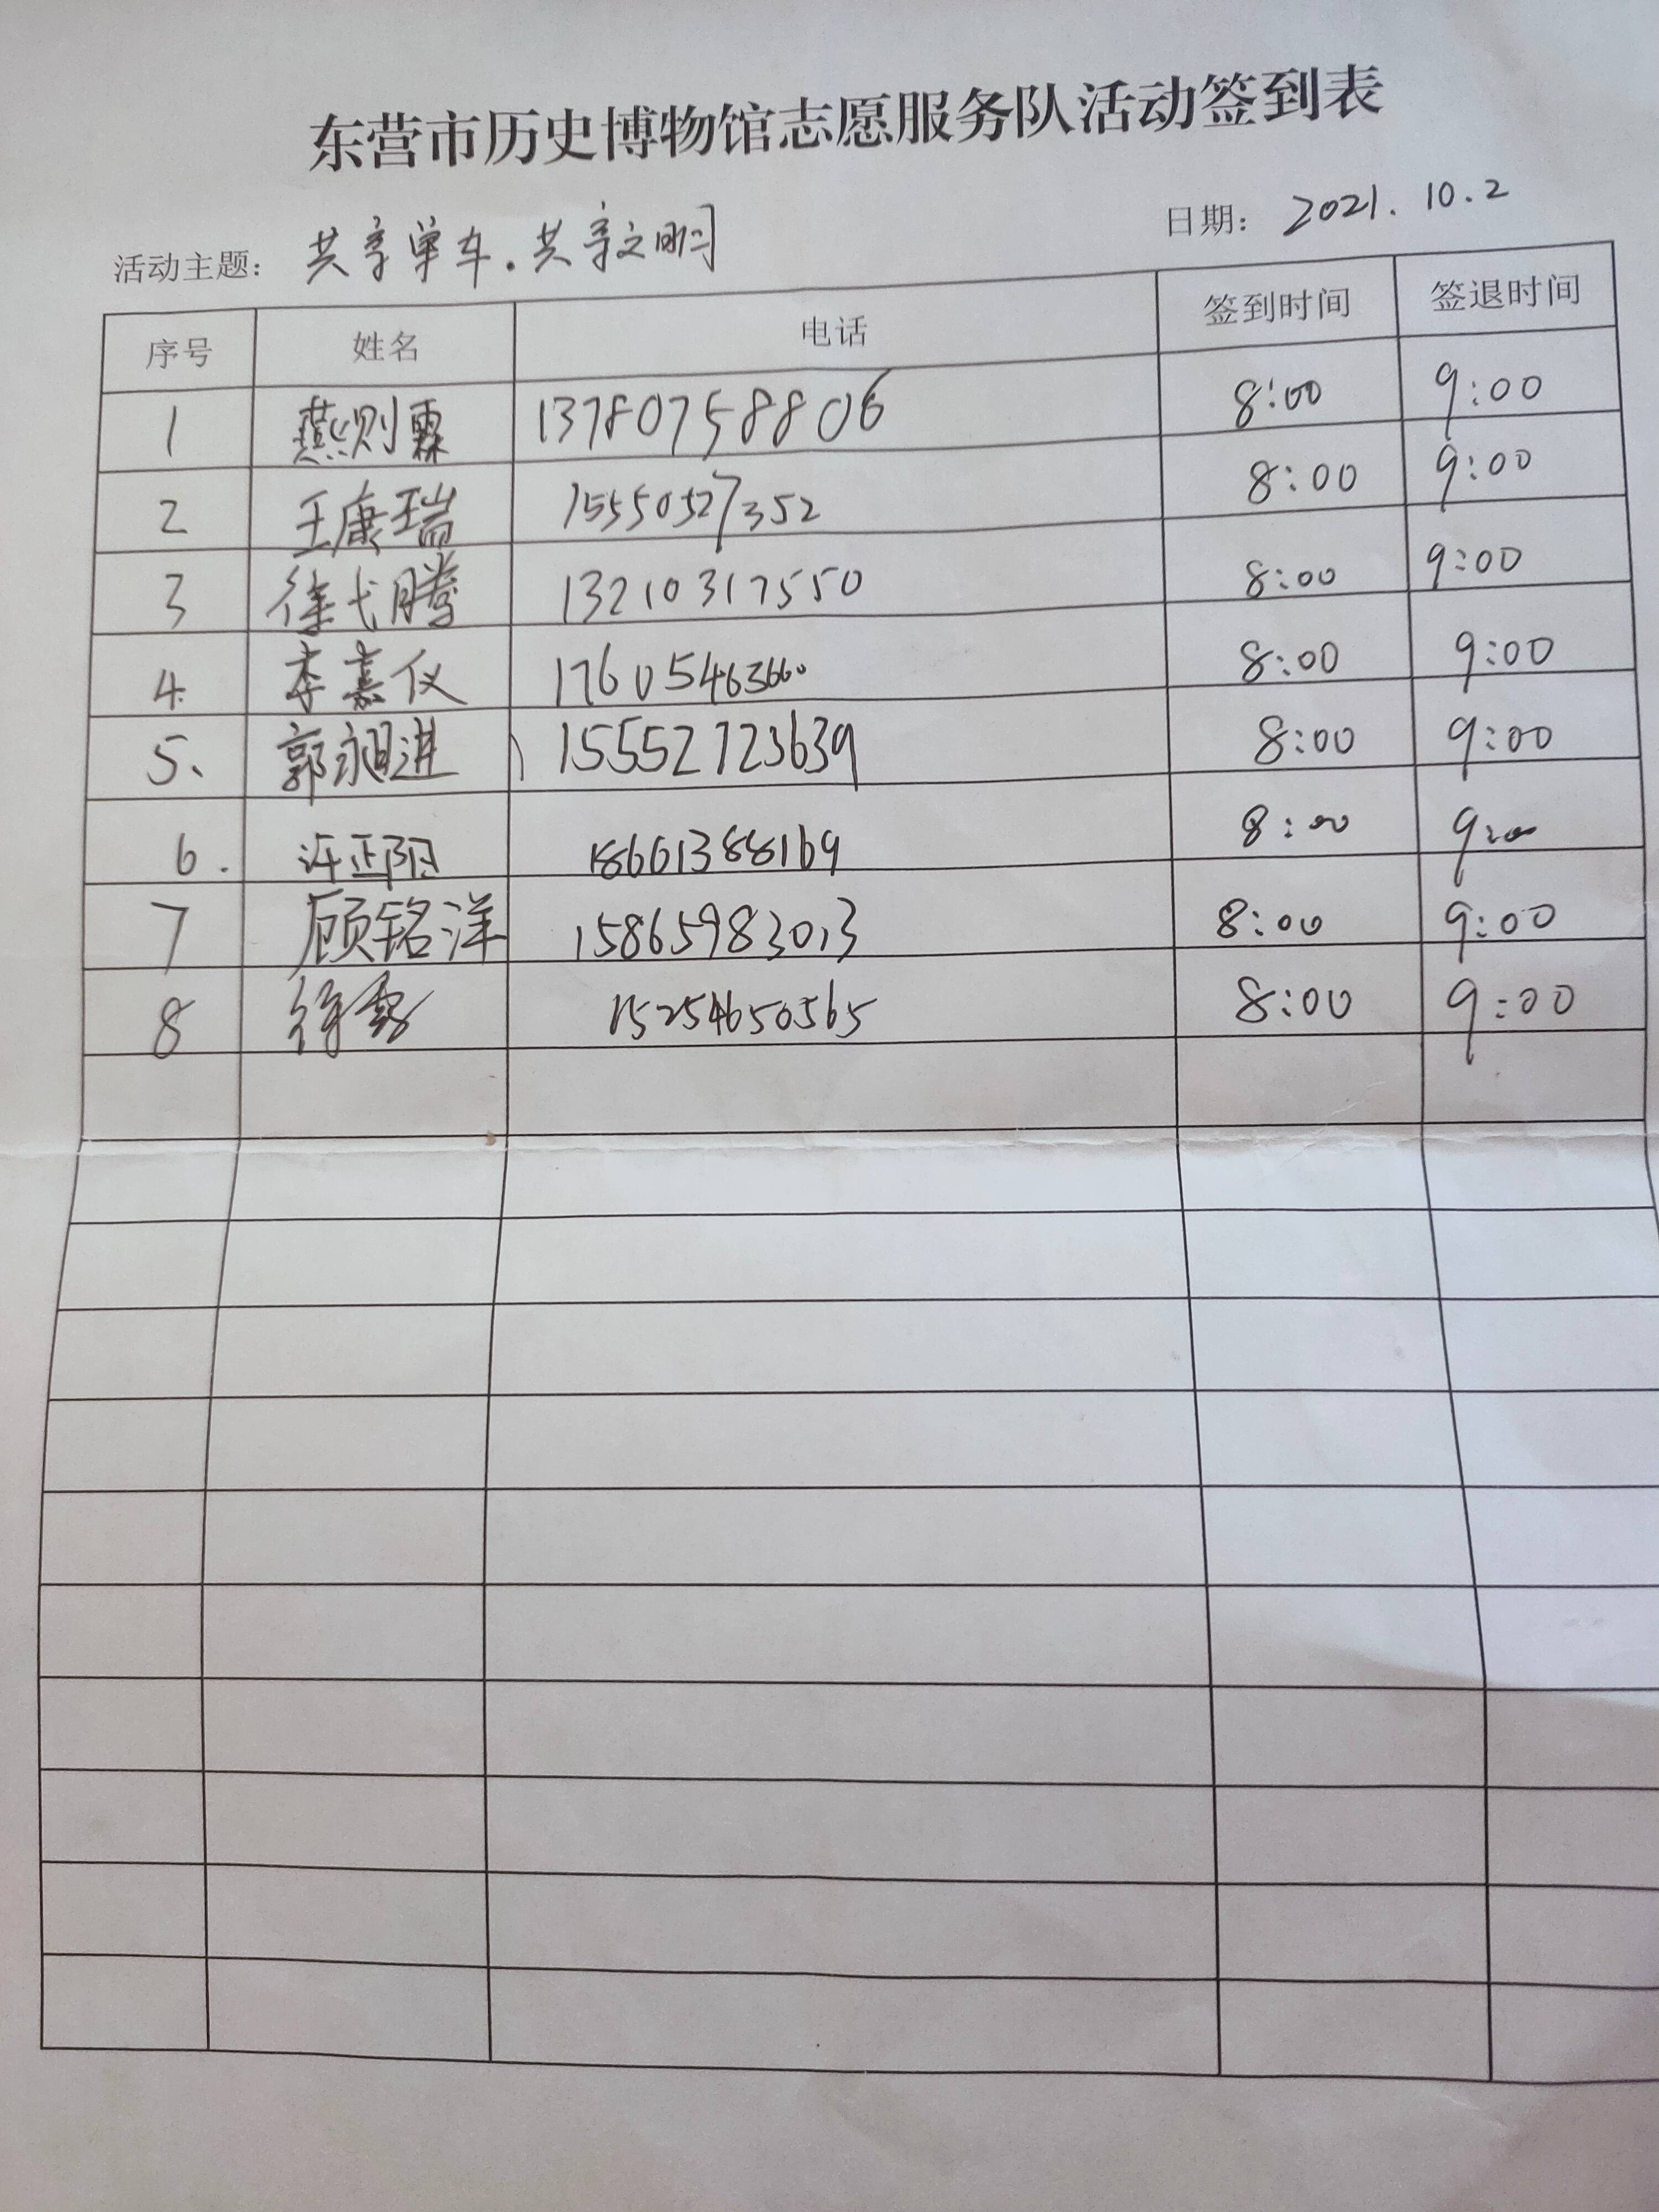 东营市历史博物馆志愿服务队活动签到表
活动主题: 共享单车.共享文明 日期: 2021.10.2
序号 姓名 电话 签到时间 签退时间
1 燕则霖 13780758806 8:00 9:00
2 王康瑞 15550527352 8:00 9:00
3 徐弋腾 13210317550 8:00 9:00
4. 李嘉仪 17605463660 8:00 9:00
5、 郭昶进 15552723639 8:00 9:00
6. 许正阳 18661388169 8:00 9:00
7 顾铭洋 15865983013 8:00 9:00
8 徐露 15254650565 8:00 9:00